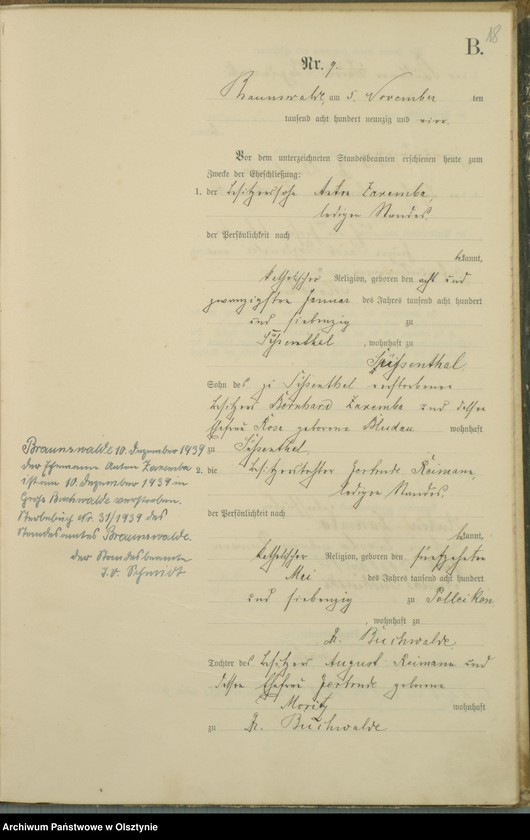 18
B.
Nr. 9.
Braunswalde, am 5. November ein
tausend acht hundert neunzig und vier.
Vor dem unterzeichneten Standesbeamten erschienen heute zum
Zwecke der Eheschließung:
1. der Besitzerssohn Anton Zaremba,
ledigen Standes,
der Persönlichkeit nach
bekannt,
katholischer Religion, geboren den acht und
zwanzigsten Januar des Jahres tausend acht hundert
und siebenzig zu
, wohnhaft zu
Sohn des zu verstorbenen
Besitzers Bernhard Zaremba und dessen
Ehefrau Rosa geborene wohnhaft
zu
2. die Besitzertochter Gertrude Reimann,
ledigen Standes,
der Persönlichkeit nach
bekannt,
katholischer Religion, geboren den fünfzehnten
Mai des Jahres tausend acht hundert
und siebenzig zu Polleiken
wohnhaft zu
Gr. Buchwalde,
Tochter des Besitzers August Reimann und
dessen Ehefrau Gertrude geborene
Moritz wohnhaft
zu Gr. Buchwalde
Braunswalde 10. Dezember 1939
Der Ehemann Anton Zaremba
ist am 10. Dezember 1939 in
Groß Buchwalde verstorben.
Sterbebuch Nr. 31/1939 des
Standesamtes Braunswalde.
Der Standesbeamte
I.V. Schmidt
Archiwum Państwowe w Olsztynie